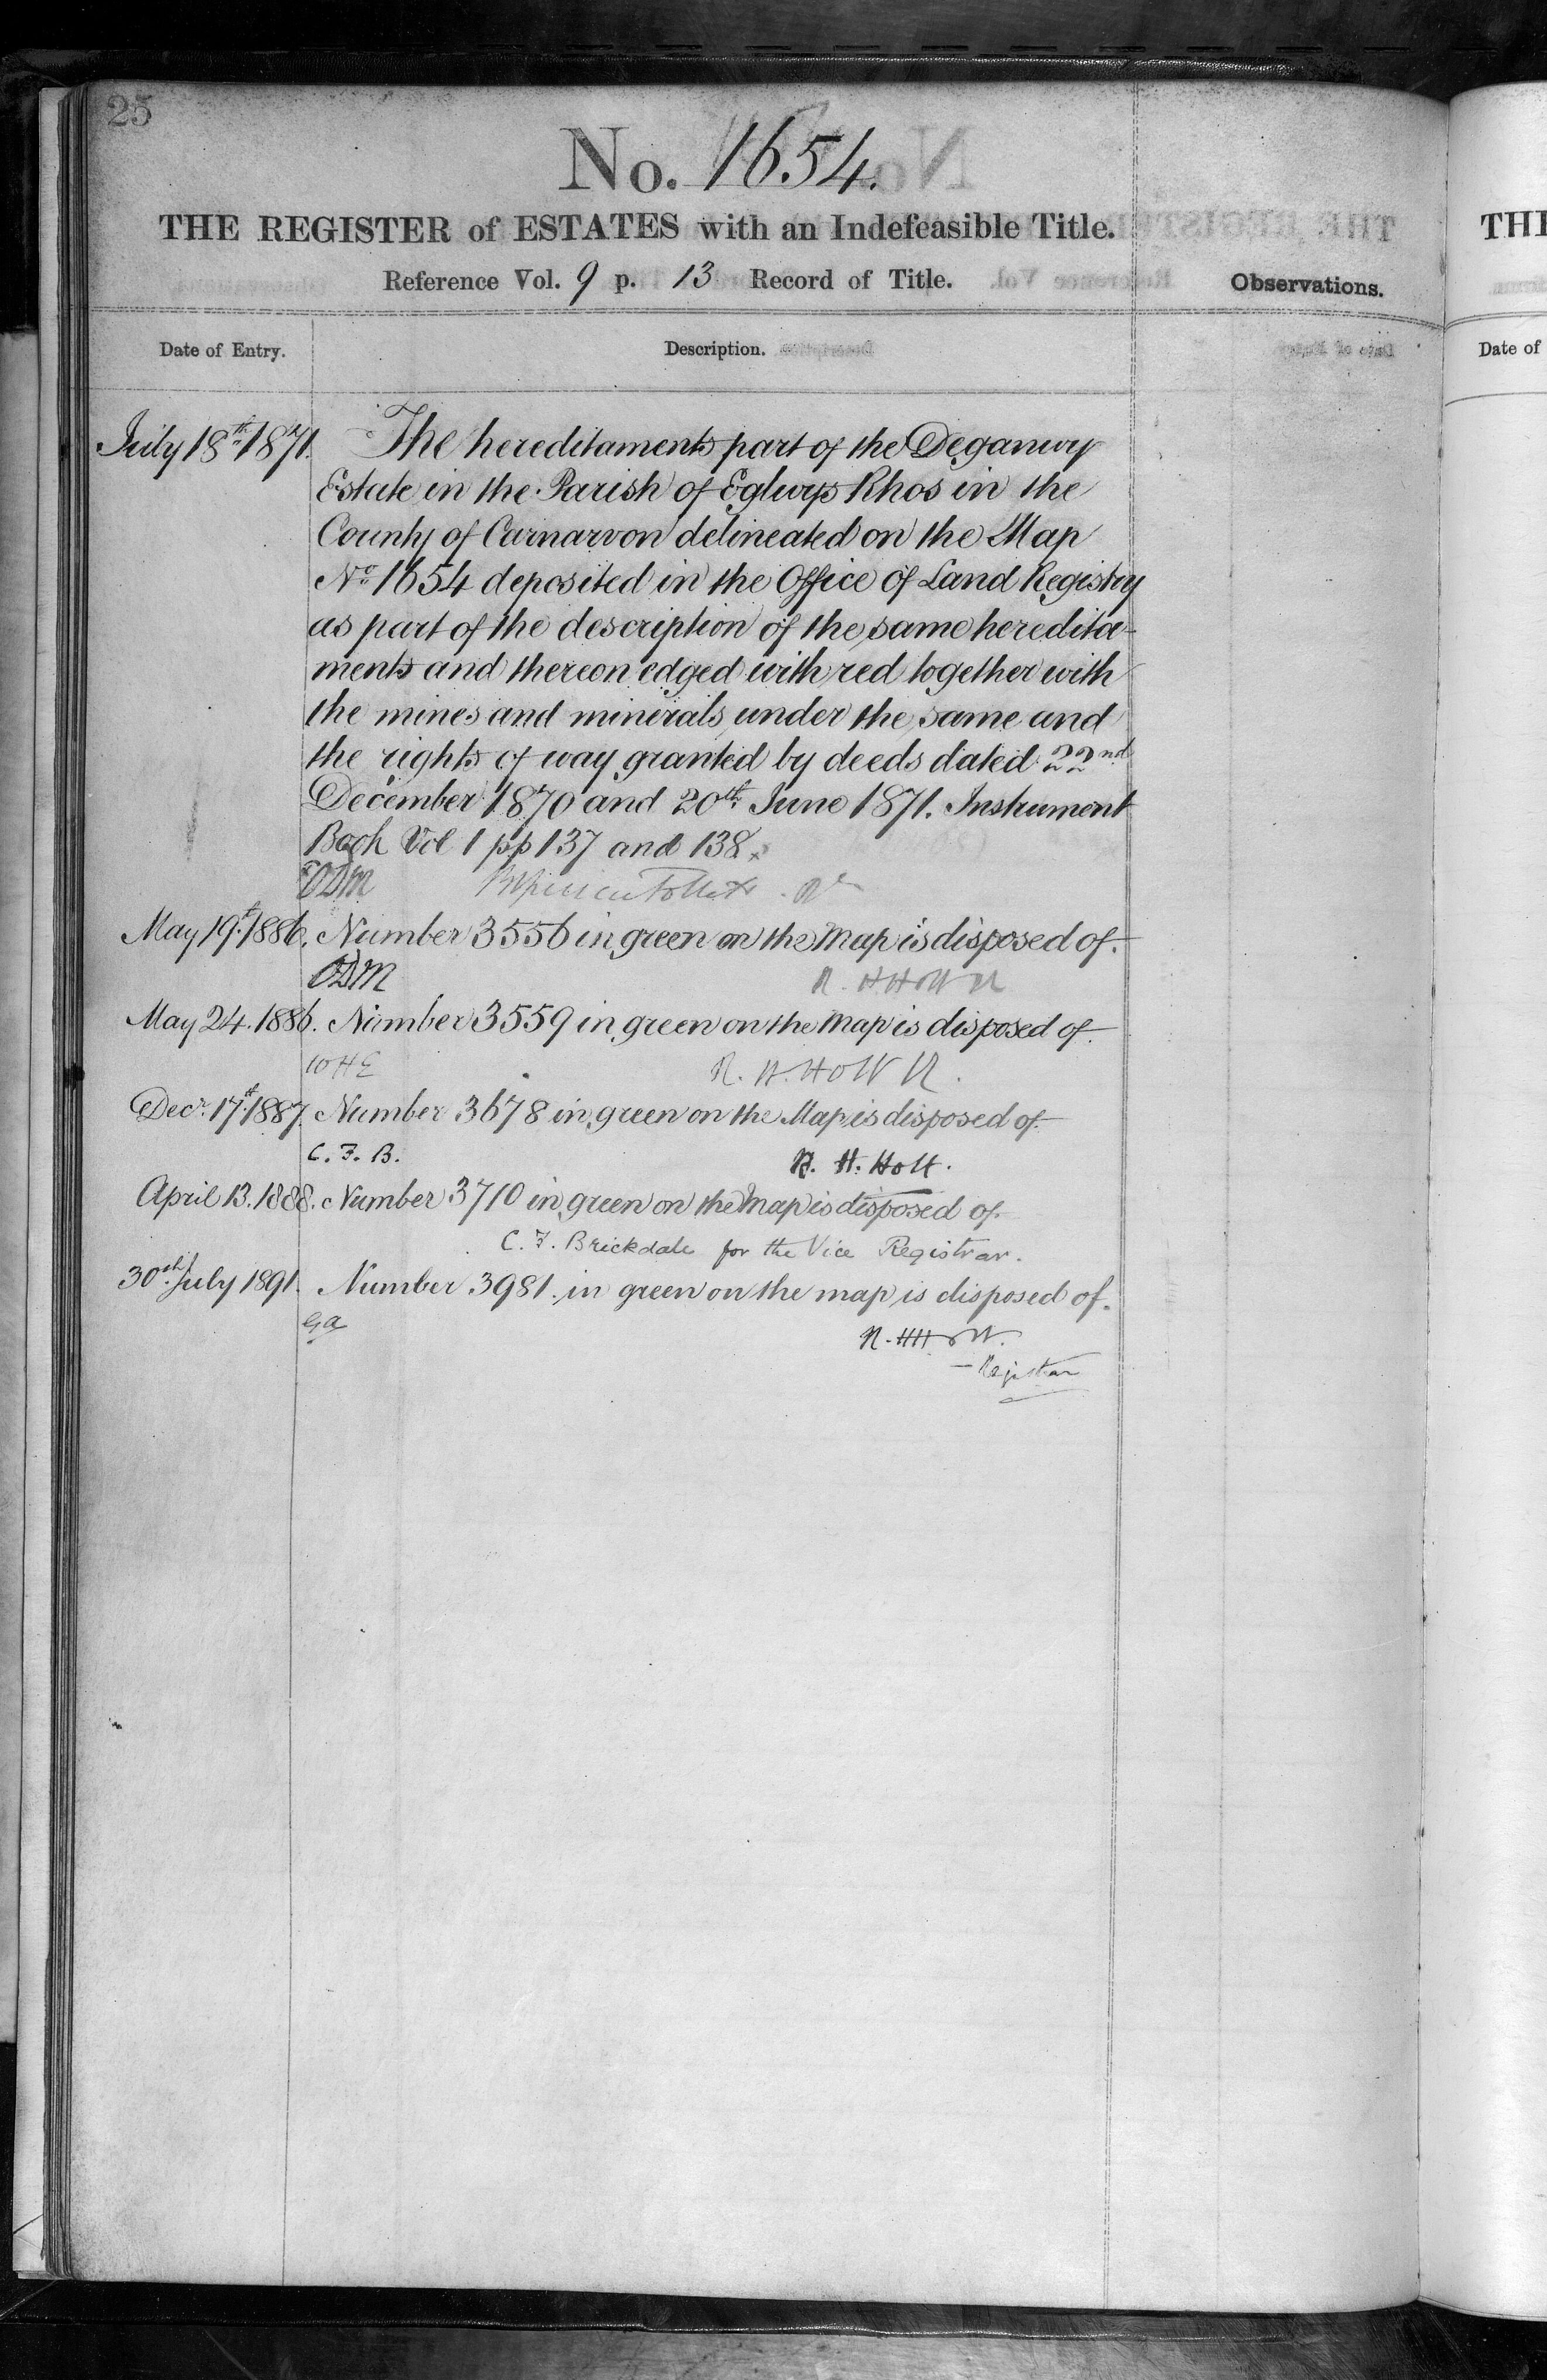 25
No. 1654.
THE REGISTER of ESTATES with an Indefeasible Title.
Reference Vol. 9 p. 13 Record of Title.
Observations.
Date of Entry.
Description.
July 18th 1871. The hereditaments part of the Deganwy
Estate in the Parish of Eglwys Rhos in the
County of Carnarvon delineated on the Map
No 1654 deposited in the Office of Land Registry
as part of the description of the same heredita-
ments and thereon edged with red together with
the mines and minerals under the same and
the rights of way granted by deeds dated 22nd
December 1870 and 20th June 1871. Instrument
Book Vol 1 pp 137 and 138
ODM
May 19th 1886. Number 3556 in green on the Map is disposed of.
ODM
May 24. 1886. Number 3559 in green on the Map is disposed of.
R. H. Holt R.
Decr. 17th 1887. Number 3678 in green on the Map is disposed of.
C. F. B. R. H. Holt.
April 13. 1888. Number 3710 in green on the Map is disposed of.
C. F. Brickdale for the Vice Registrar.
30th July 1891. Number 3981. in green on the map is disposed of.
R. H Holt.
Registrar
THE
Date of